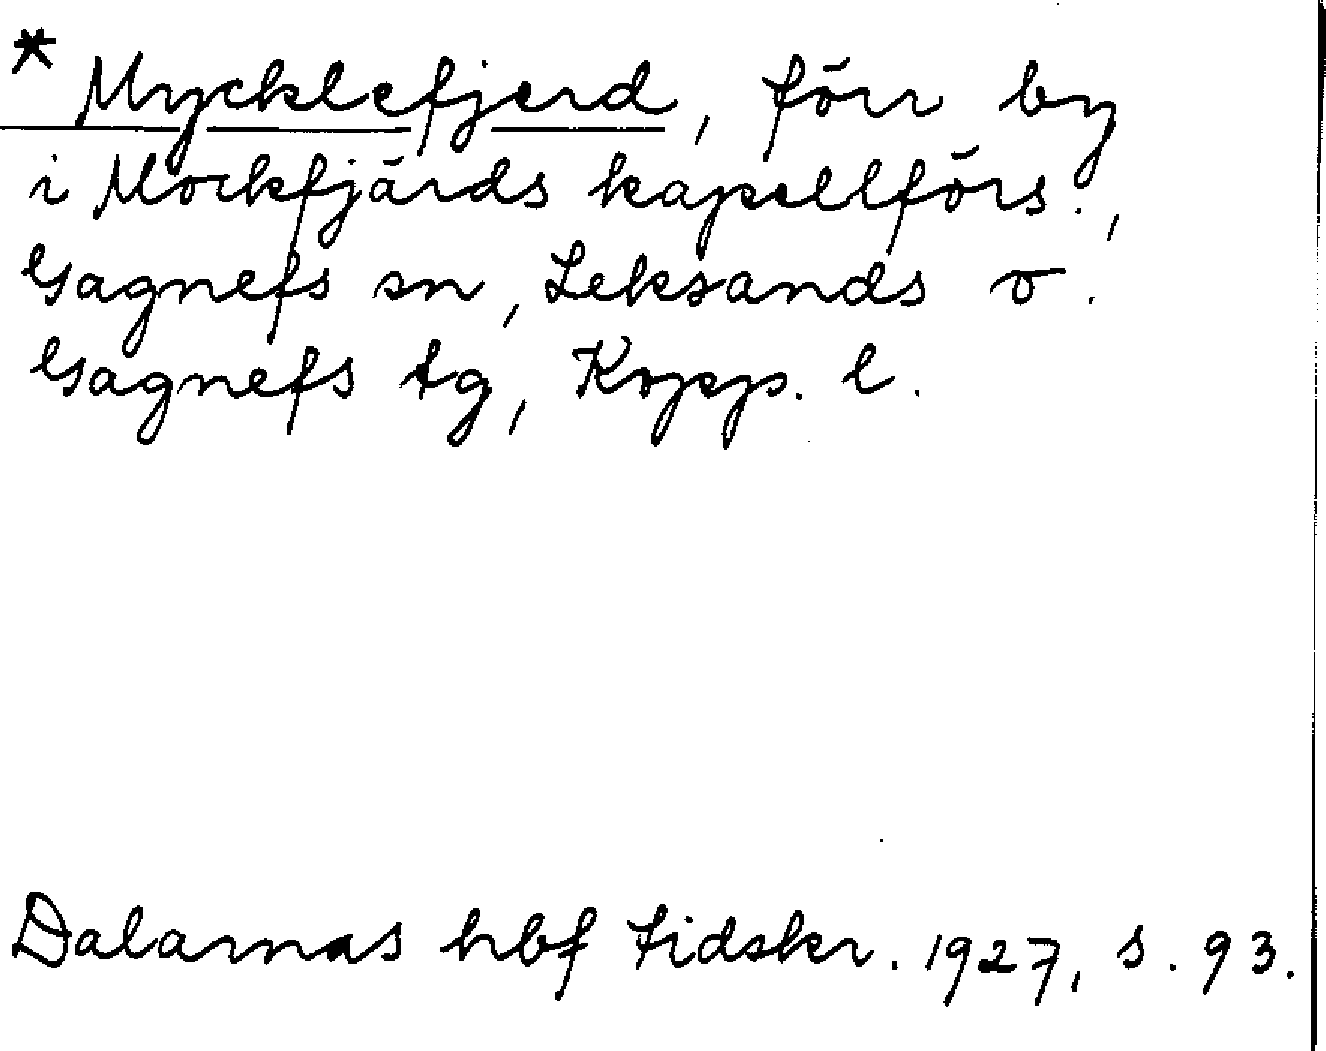 * Mycklefjerd, förr by
i Mockfjärds kapellförs.,
Gagnefs sn, Leksands o.
Gagnefs tg, Kopp. l.
Dalarnas hbf tidskr. 1927, s. 93.